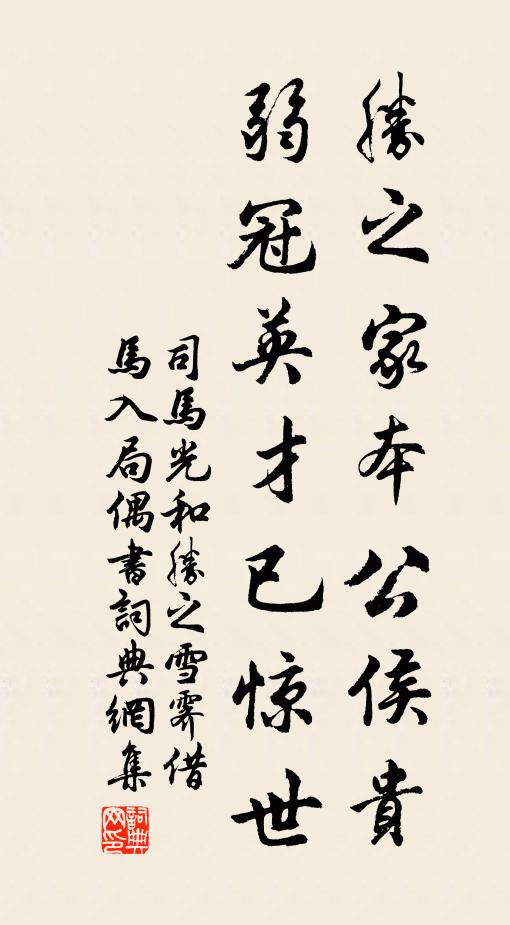 勝之家本公侯貴
弱冠英才已惊世
司馬光和勝之雪霽借
馬入局偶書詞典網集
詞典网印